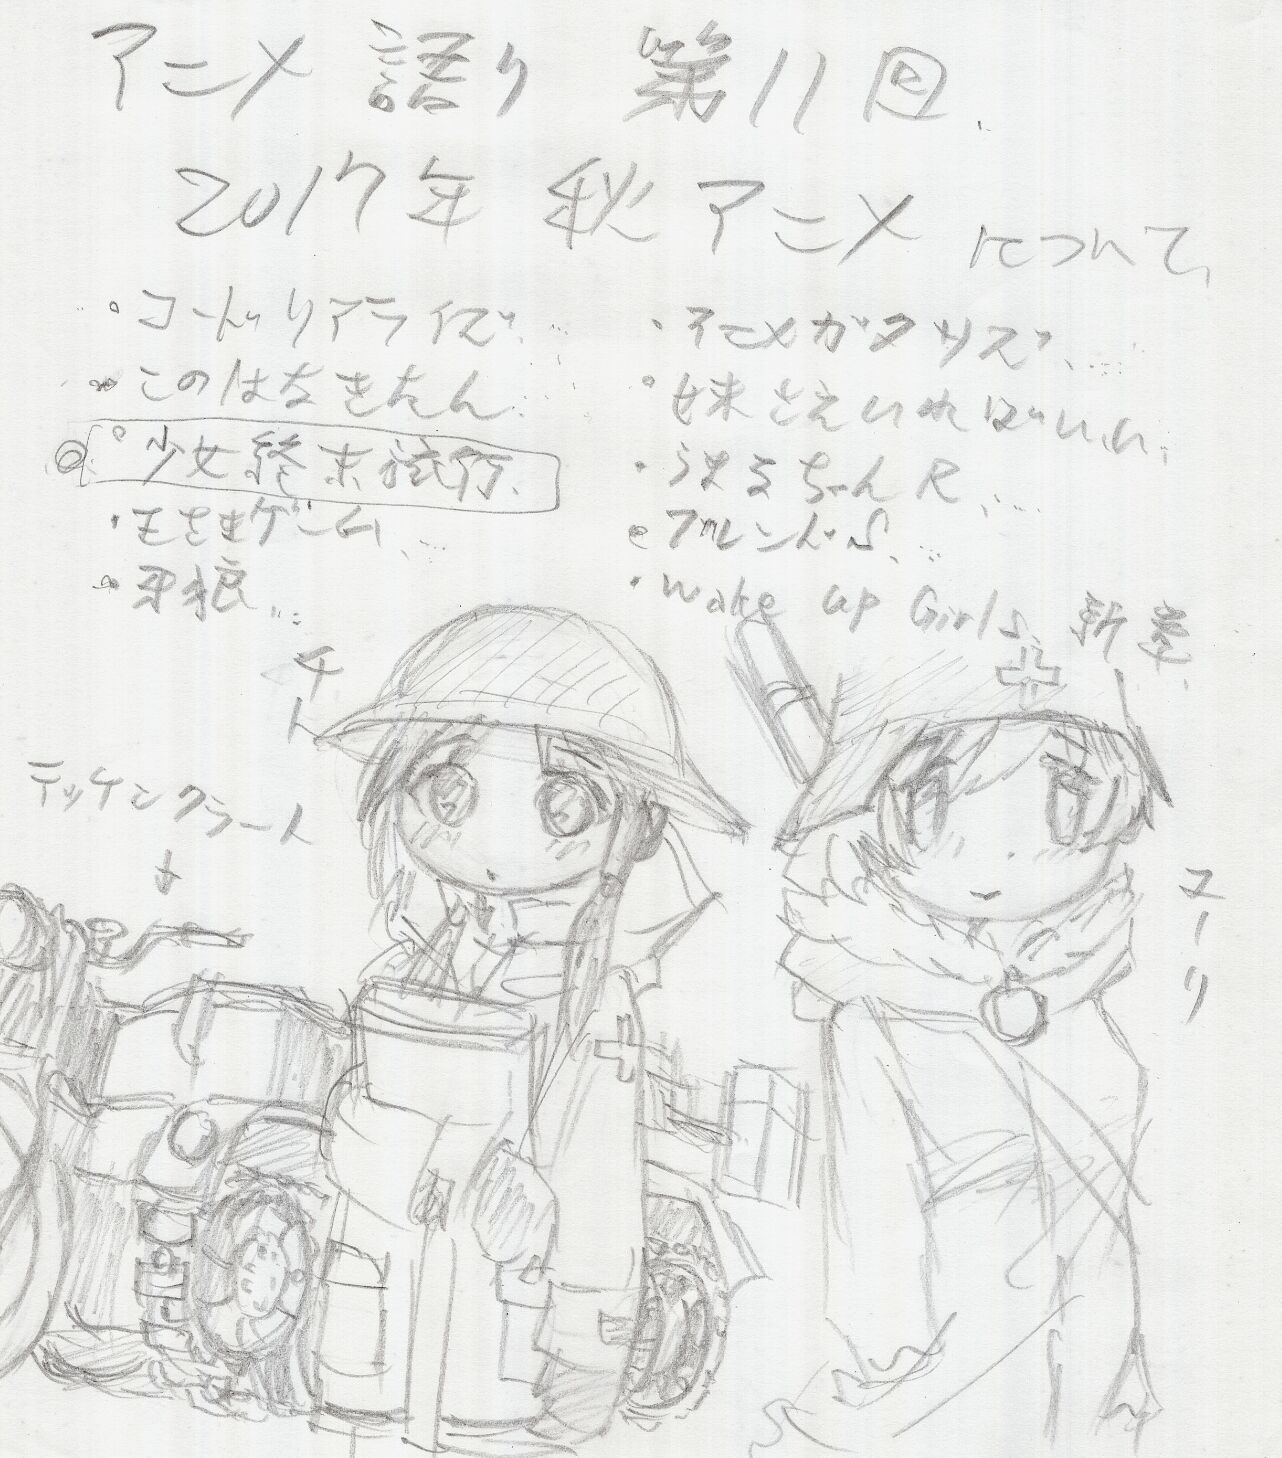 アニメ語り 第11回.
2017年 秋アニメ について、
・コードリアライズ、…
・このはなきたん…
◎ ・少女終末旅行、
・王さまゲーム、…
・牙狼、…
・アニメガタリズ、…
・妹さえいればいい、
・うまるちゃんR、…
・ブレンド・S、…
・Wake up Girls、新章
チト
ケッテンクラート
↓
ユーリ